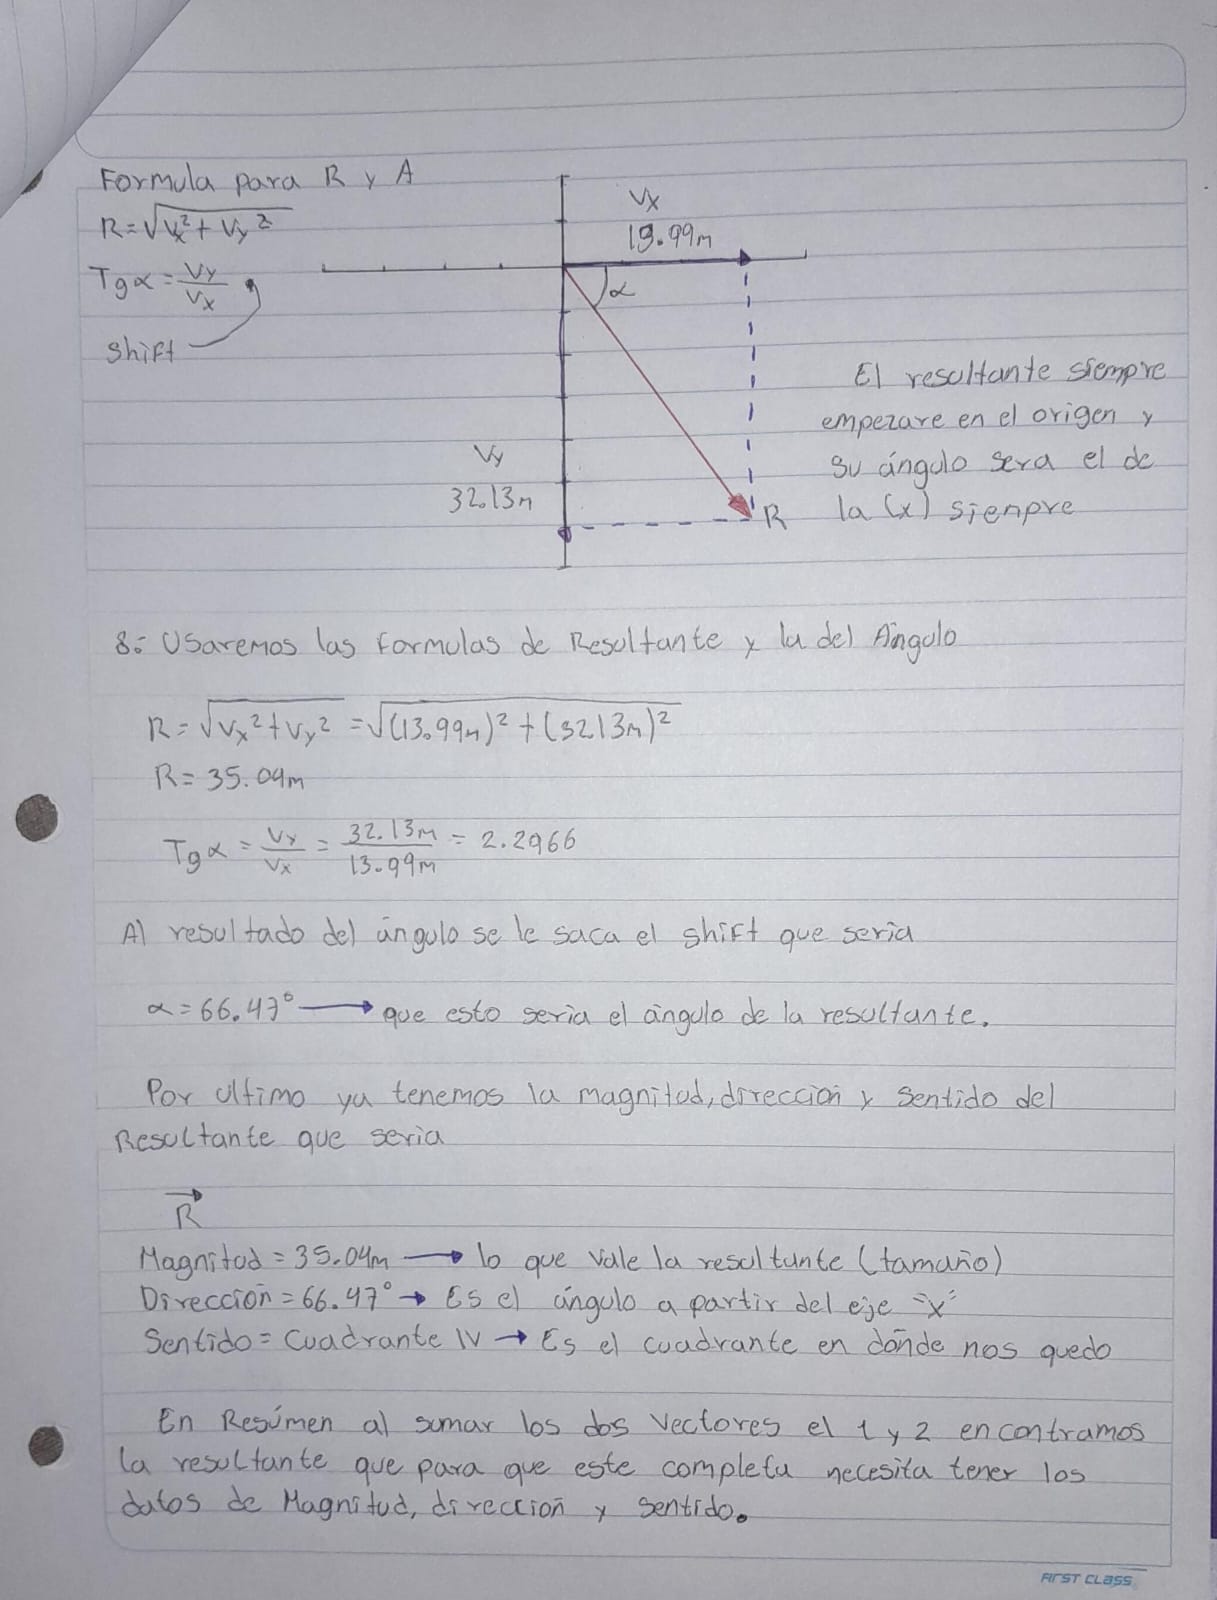 Formula para R y A
R = √Vx² + Vy²
Tgα = Vy/Vx
Shift
Vx
13.99m
α
Vy
32.13m
R
El resultante siempre
empezare en el origen y
su ángulo sera el de
la (x) siempre
8: Usaremos las Formulas de Resultante y la del Ángulo
R = √Vx² + Vy² = √(13.99m)² + (32.13m)²
R = 35.04m
Tgα = Vy/Vx = 32.13m/13.99m = 2.2966
Al resultado del ángulo se le saca el shift que seria
α = 66.47° → que esto seria el ángulo de la resultante.
Por ultimo ya tenemos la magnitud, dirección y Sentido del
Resultante que seria
R⃗
Magnitud = 35.04m → lo que vale la resultante (tamaño)
Dirección = 66.47° → Es el ángulo a partir del eje "x"
Sentido = Cuadrante IV → Es el cuadrante en dónde nos quedo
En Resúmen al sumar los dos Vectores el 1 y 2 encontramos
la resultante que para que este completa necesita tener los
datos de Magnitud, dirección y Sentido.
FIRST CLASS